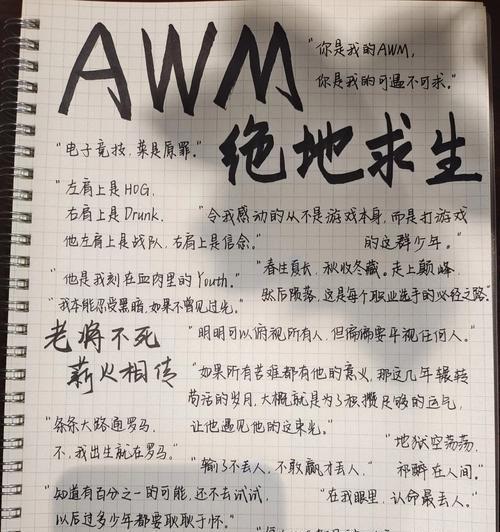 AWM
"你是我的AWM,
你是我的可遇不可求."
绝地求生
"电子竞技,菜是原罪."
"左肩上是HOG,
右肩上是Drunk.
他左肩上是战队,右肩上是信念."
"令我感动的从不是游戏本身,而是打游戏
的这群少年."
"他是我刻在血肉里的Youth."
"春生夏长,秋收冬藏.走上巅峰,
然后陨落,这是每个职业选手的必经之路."
"我本能忍受黑暗,如果不曾见过光."
老将不死
薪火相传
"明明可以俯视所有人,但偏偏要平视任何人."
"如果所有苦难都有他的意义,那这几年辗转
苟活的岁月,大概就是为了积攒足够的运气,
让他遇见他的这束光."
"条条大路通罗马,
不,我出生就在罗马."
"地狱空荡荡,
神醉在人间."
"输了不丢人,不敢赢才丢人."
"知道有百分之一的可能,还不去试试,
以后过多少年都要耿耿于怀."
"在我眼里,认命最丢人."